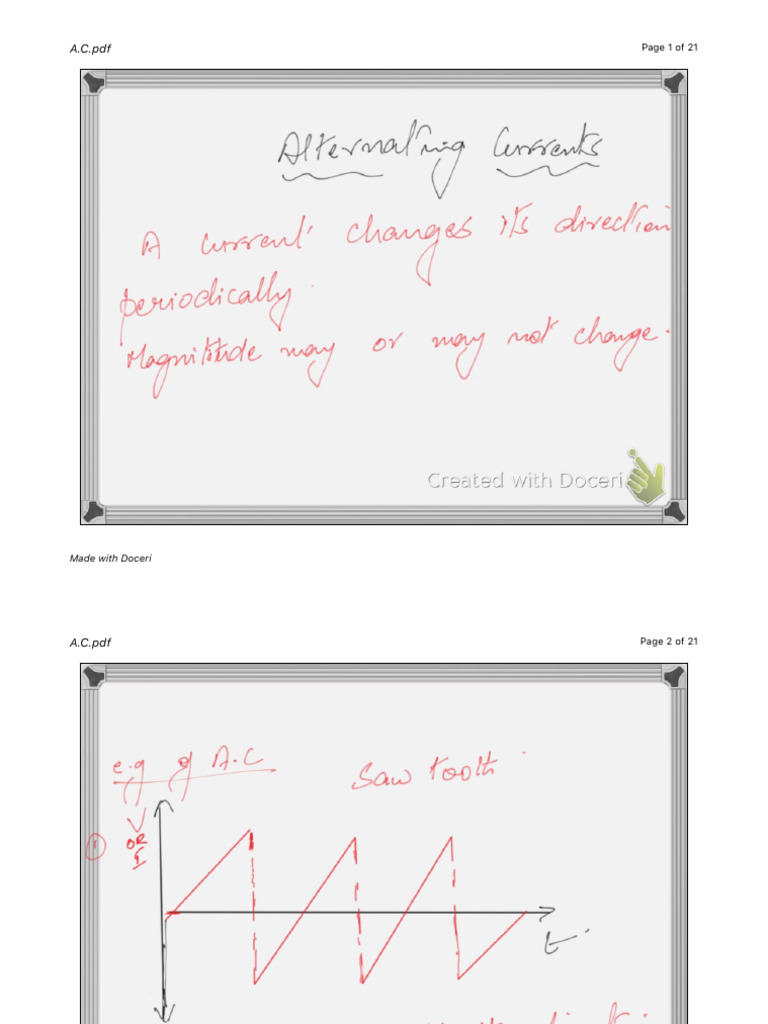 A.C.pdf
Page 1 of 21
Alternating Currents
A current changes its direction
periodically.
Magnitude may or may not change.
Created with Doceri
Made with Doceri
A.C.pdf
Page 2 of 21
e.g of A.C
Saw tooth
V
OR
I
1
t